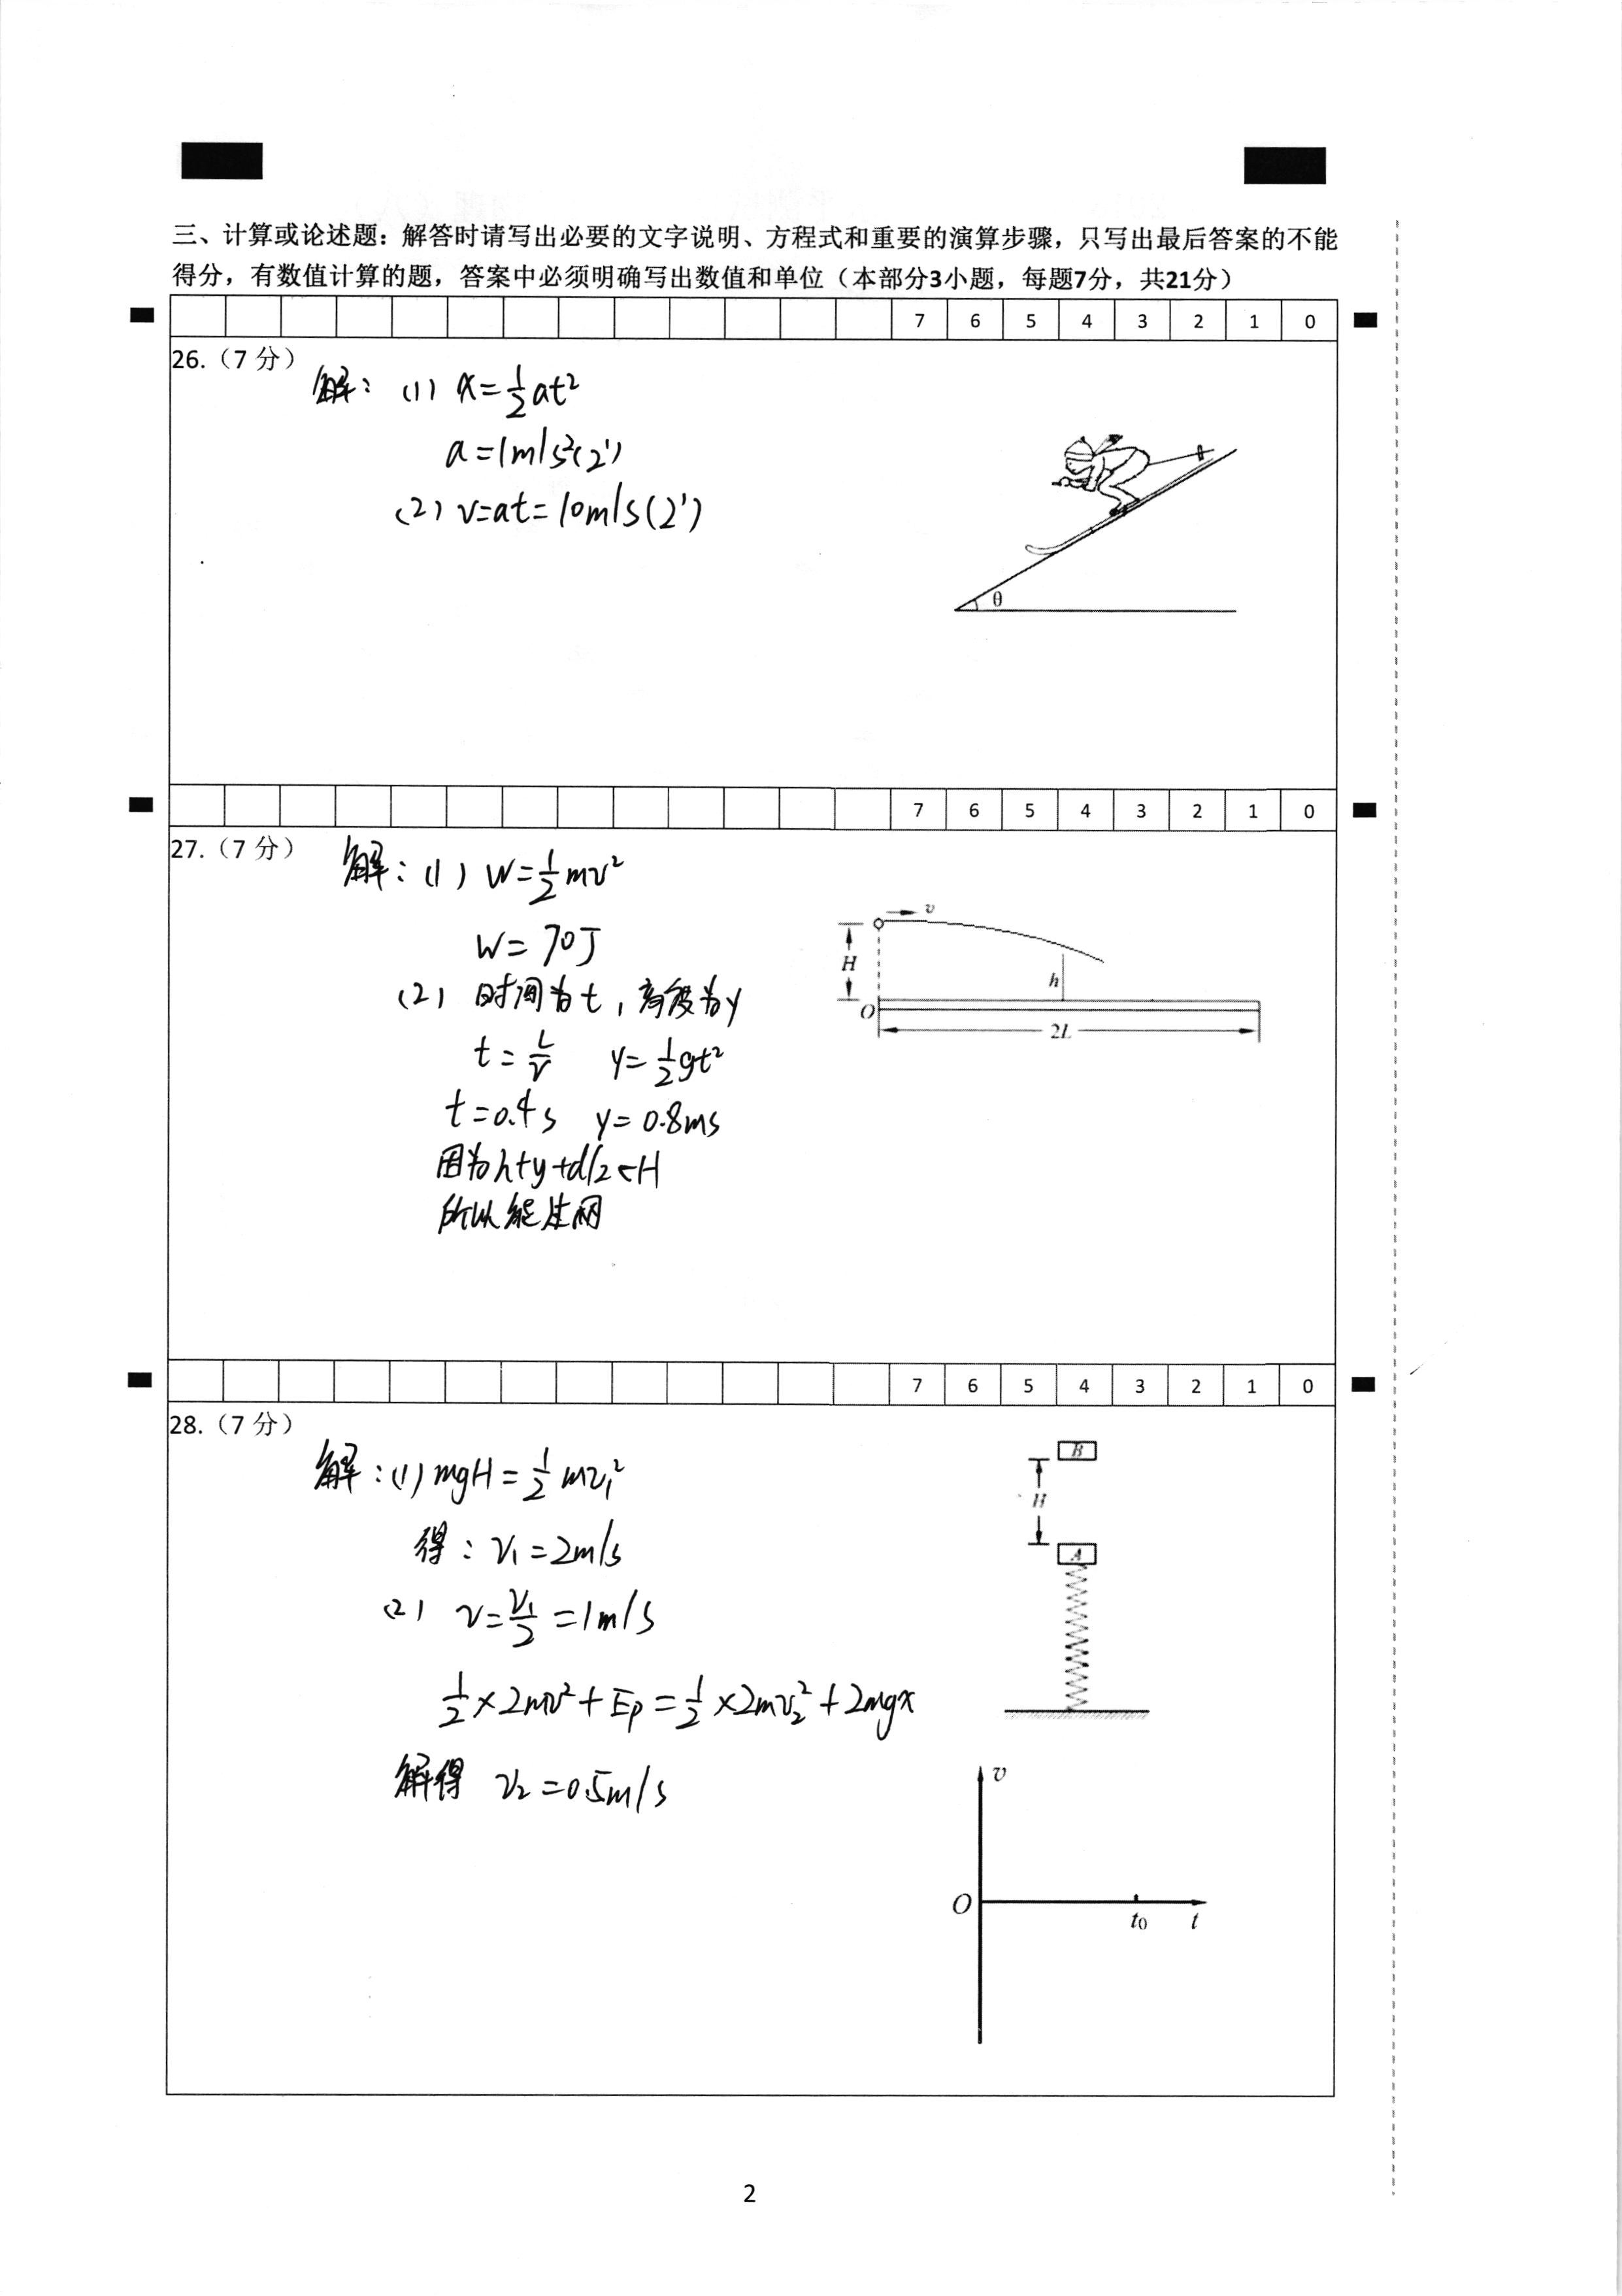 三、计算或论述题：解答时请写出必要的文字说明、方程式和重要的演算步骤，只写出最后答案的不能
得分，有数值计算的题，答案中必须明确写出数值和单位（本部分3小题，每题7分，共21分）
7 6 5 4 3 2 1 0
26.（7 分）
解：(1) x=½at²
a=1m/s²(2')
(2) v=at=10m/s(2')
θ
7 6 5 4 3 2 1 0
27.（7 分）
解：(1) W=½mv²
W=70J
(2) 时间为t，高度为y
t=L/v y=½gt²
t=0.4s y=0.8ms
因为h+y+d/2<H
所以能过网
v
H
h
O
2L
7 6 5 4 3 2 1 0
28.（7 分）
解：(1) mgH=½mv₁²
得：v₁=2m/s
(2) v=v₁/2=1m/s
½×2mv²+Ep=½×2mv₂²+2mgx
解得 v₂=0.5m/s
B
H
A
v
O
t₀ t
2